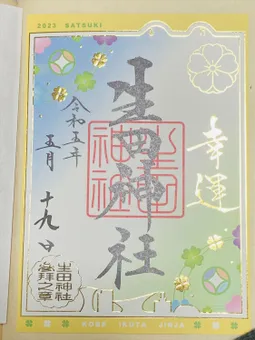 2023 SATSUKI
幸運
生田神社
生田神社
令和五年
五月十九日
生田神社
参拝之章
KOBE IKUTA JINJA